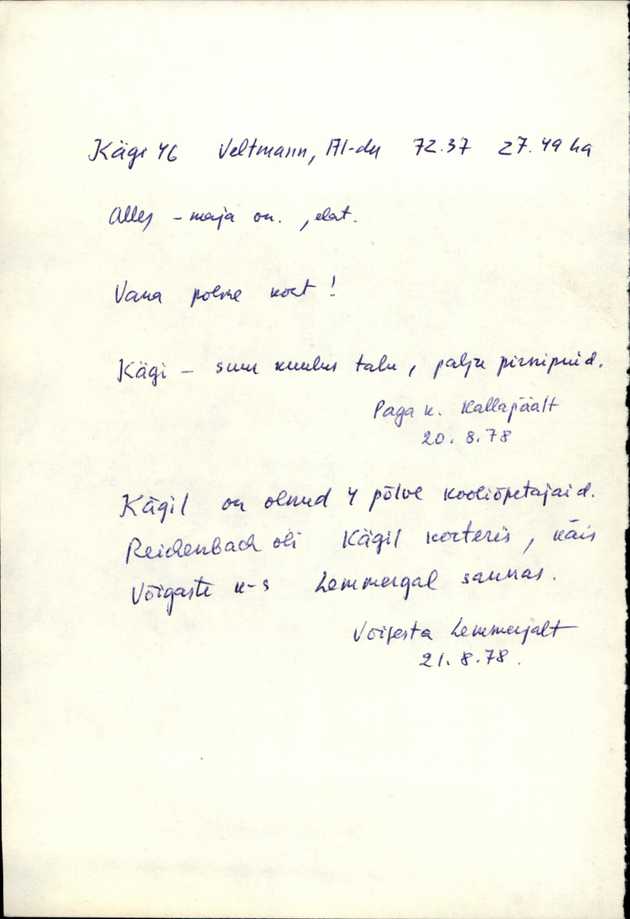 Kägi 46 Veltmann, Al-du 72.37 27.49 ha
Alles - maja on. , elat.
Vana põlve koht!
Kägi - suur kuulus talu, palju pirnipuid.
Paga k. Kallapäält
20.8.78
Kägil on olnud 4 põlve kooliõpetajaid.
Reichenbach oli Kägil korteris, käis
Võigaste k-s Lemmergal saunas.
Võigasta Lemmerjalt
21.8.78.